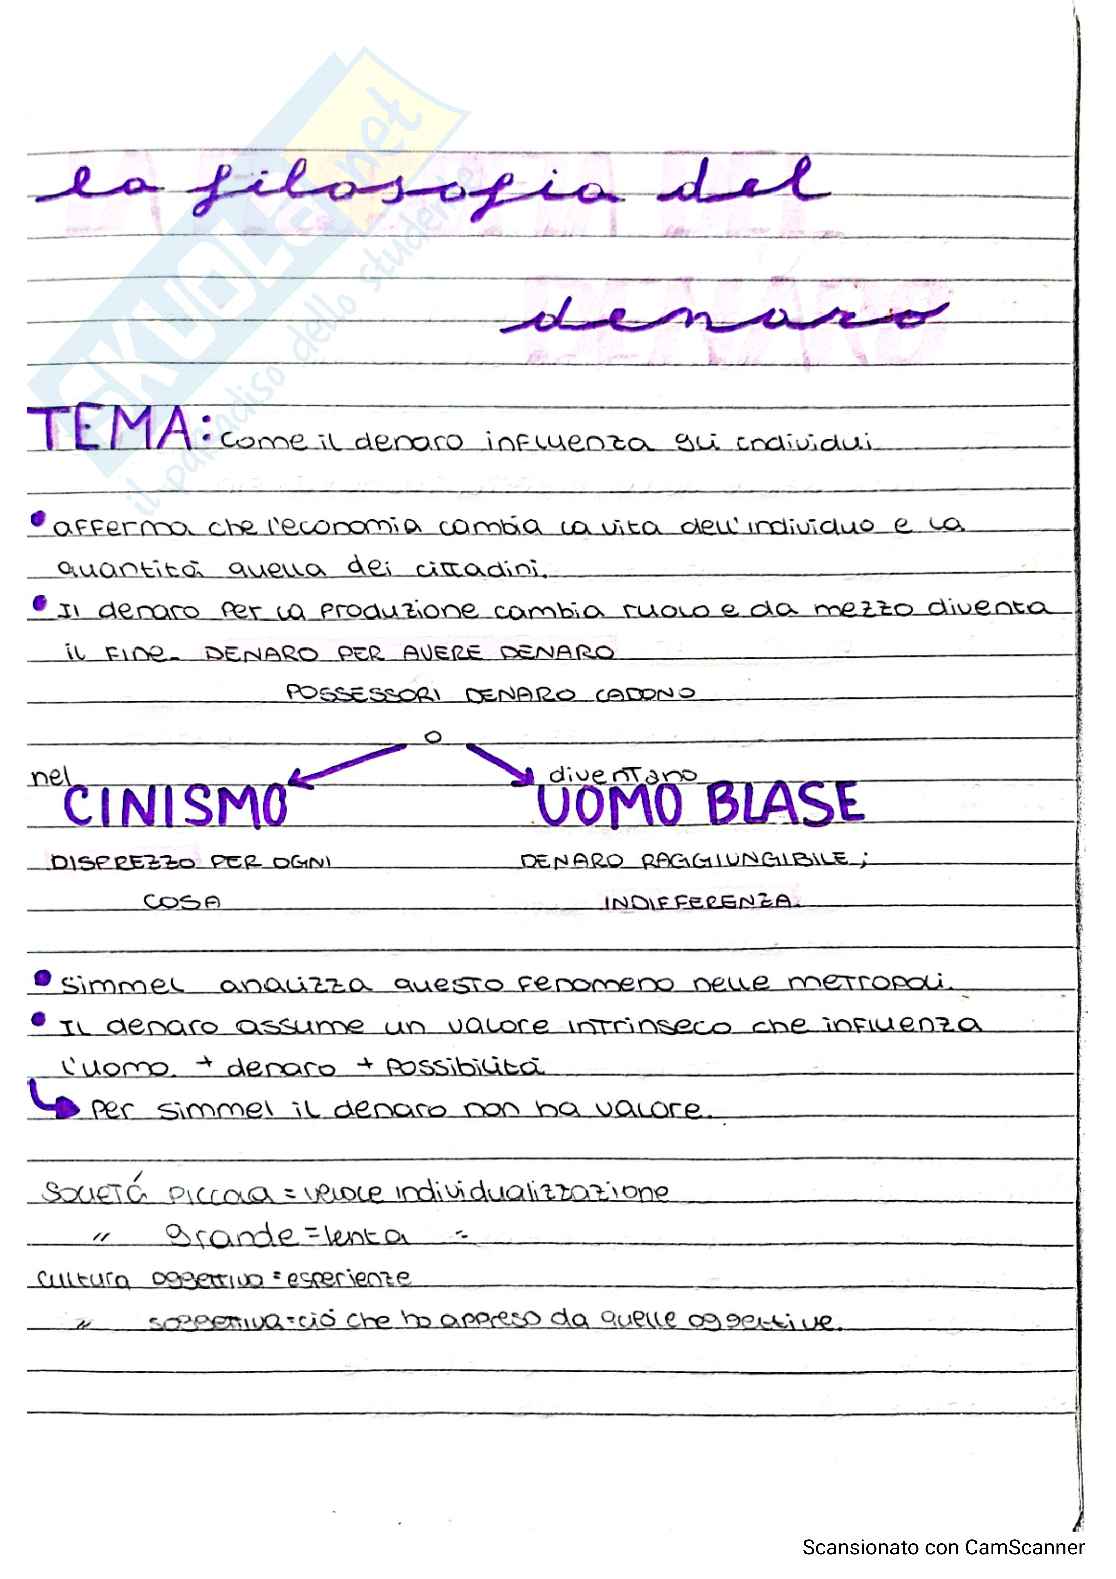 la filosofia del
denaro
TEMA: come il denaro influenza gli individui
• afferma che l'economia cambia la vita dell'individuo e la
quantità quella dei cittadini.
• Il denaro per la produzione cambia ruolo e da mezzo diventa
il fine. DENARO PER AVERE DENARO
POSSESSORI DENARO CADONO
o
nel diventano
CINISMO UOMO BLASE
DISPREZZO PER OGNI DENARO RAGGIUNGIBILE;
COSA INDIFFERENZA.
• Simmel analizza questo fenomeno nelle metropoli.
• Il denaro assume un valore intrinseco che influenza
l'uomo. + denaro + possibilità
Per simmel il denaro non ha valore.
Società piccola = veloce individualizzazione
" grande = lenta =
cultura oggettiva = esperienze
" soggettiva = ciò che ho appreso da quelle oggettive.
SKUOLA.net
il paradiso dello studente
Scansionato con CamScanner